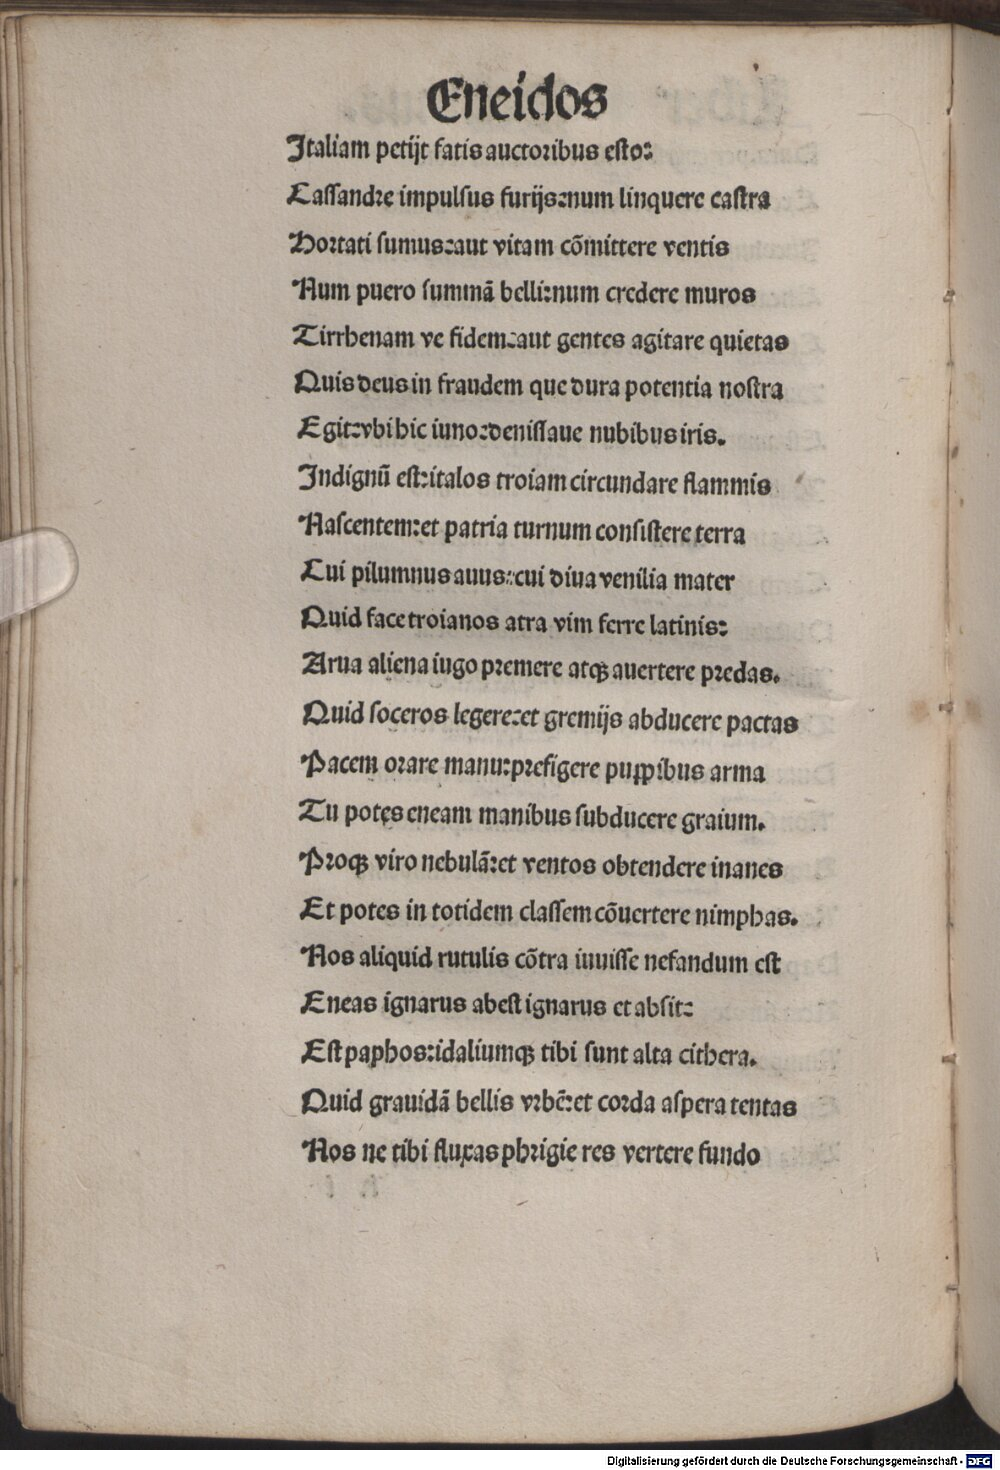 Eneidos
Italiam petijt fatis auctoribus esto:
Cassandre impulsus furijs:num linquere castra
Hortati sumus:aut vitam cõmittere ventis
Num puero summã belli:num credere muros
Tirrhenam ve fidem:aut gentes agitare quietas
Quis deus in fraudem que dura potentia nostra
Egit:vbi hic iuno:demissaue nubibus iris.
Indignũ est:italos troiam circundare flammis
Nascentem:et patria turnum consistere terra
Cui pilumnus auus:cui diua venilia mater
Quid face troianos atra vim ferre latinis:
Arua aliena iugo premere atqꝫ auertere predas.
Quid soceros legere:et gremijs abducere pactas
Pacem orare manu:prefigere puppibus arma
Tu potes eneam manibus subducere graium.
Proqꝫ viro nebulã:et ventos obtendere inanes
Et potes in totidem classem cõuertere nimphas.
Nos aliquid rutulis cõtra iuuisse nefandum est
Eneas ignarus abest ignarus et absit:
Est paphos:idaliumqꝫ tibi sunt alta cithera.
Quid grauidã bellis vrbẽ:et corda aspera tentas
Nos ne tibi fluxas phrigie res vertere fundo
Digitalisierung gefördert durch die Deutsche Forschungsgemeinschaft - DFG